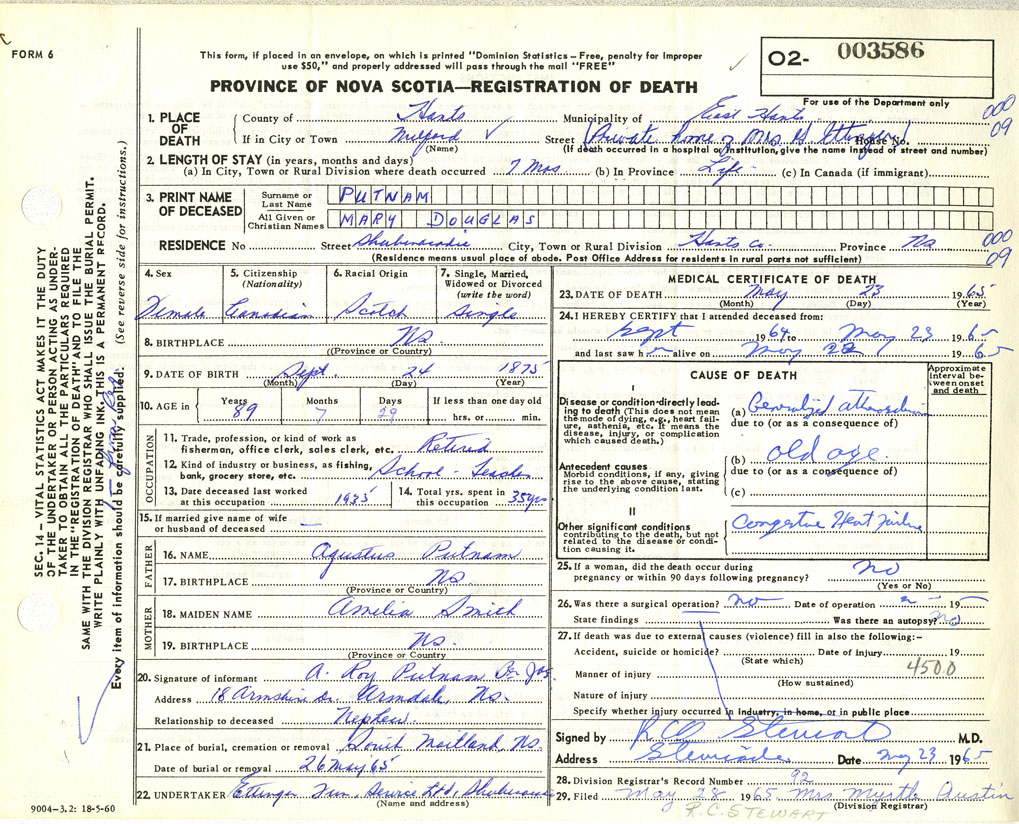 FORM 6
This form, if placed in an envelope, on which is printed "Dominion Statistics – Free, penalty for improper
use $50," and properly addressed will pass through the mail "FREE"
O2- 003586
PROVINCE OF NOVA SCOTIA—REGISTRATION OF DEATH
For use of the Department only
1. PLACE OF DEATH
County of Hants Municipality of East Hants
000
09
If in City or Town Milford Street (Private home of Mrs. G Ettinger) House No.
(Name) (If death occurred in a hospital or institution, give the name instead of street and number)
2. LENGTH OF STAY (in years, months and days)
(a) In City, Town or Rural Division where death occurred 7 Mos. (b) In Province Life (c) In Canada (if immigrant)
3. PRINT NAME OF DECEASED
Surname or Last Name PUTNAM
All Given or Christian Names MARY DOUGLAS
RESIDENCE No Street Shubenacadie City, Town or Rural Division Hants Co. Province Ns
000
09
(Residence means usual place of abode. Post Office Address for residents in rural parts not sufficient)
4. Sex
Female
5. Citizenship
(Nationality)
Canadian
6. Racial Origin
Scotch
7. Single, Married,
Widowed or Divorced
(write the word)
Single
8. BIRTHPLACE Ns.
((Province or Country)
9. DATE OF BIRTH Sept. 24 1875
(Month) (Day) (Year)
10. AGE in
Years Months Days If less than one day old
89 7 29 hrs. or min.
OCCUPATION
11. Trade, profession, or kind of work as
fisherman, office clerk, sales clerk, etc. Retired
12. Kind of industry or business, as fishing,
bank, grocery store, etc. School - Teacher
13. Date deceased last worked
at this occupation 1935
14. Total yrs. spent in
this occupation 35 yrs
15. If married give name of wife
or husband of deceased —
FATHER
16. NAME Agustus Putnam
17. BIRTHPLACE Ns
(Province or Country)
MOTHER
18. MAIDEN NAME Amelia Smith
19. BIRTHPLACE Ns.
(Province or Country)
20. Signature of informant A. Roy Putnam
Address 18 Armshire Dr. Armdale, Ns.
Relationship to deceased Nephew.
21. Place of burial, cremation or removal South Maitland, Ns
Date of burial or removal 26 May 65
22. UNDERTAKER Ettinger Fun. Service Ltd, Shubenacadie
(Name and address)
MEDICAL CERTIFICATE OF DEATH
23. DATE OF DEATH May 23 1965
(Month) (Day) (Year)
24. I HEREBY CERTIFY that I attended deceased from:
Sept 1964 to May 23 1965
and last saw her alive on May 22 1965
CAUSE OF DEATH
Approximate
interval be-
tween onset
and death
I
Disease or condition directly lead-
ing to death (This does not mean
the mode of dying, e.g., heart fail-
ure, asthenia, etc. It means the
disease, injury, or complication
which caused death.)
(a) Generalized
due to (or as a consequence of)
Antecedent causes
Morbid conditions, if any, giving
rise to the above cause, stating
the underlying condition last.
(b) old age.
due to (or as a consequence of)
(c)
II
Other significant conditions
contributing to the death, but not
related to the disease or condi-
tion causing it.
Congestive Heart Failure
25. If a woman, did the death occur during
pregnancy or within 90 days following pregnancy? no
(Yes or No)
26. Was there a surgical operation? no Date of operation 19
State findings Was there an autopsy? no
27. If death was due to external causes (violence) fill in also the following:–
Accident, suicide or homicide? Date of injury 19
(State which)
450.0
Manner of injury
(How sustained)
Nature of injury
Specify whether injury occurred in industry, in home, or in public place
Signed by R C Stewart M.D.
Address Date May 23 1965
28. Division Registrar's Record Number 92
29. Filed May 28 1965 Mrs Myrtle Austin
(Division Registrar)
R.C. STEWART
SEC. 14 – VITAL STATISTICS ACT MAKES IT THE DUTY
OF THE UNDERTAKER OR PERSON ACTING AS UNDER-
TAKER TO OBTAIN ALL THE PARTICULARS REQUIRED
IN THE "REGISTRATION OF DEATH" AND TO FILE THE
SAME WITH THE DIVISION REGISTRAR WHO SHALL ISSUE THE BURIAL PERMIT.
WRITE PLAINLY WITH UNFADING INK–THIS IS A PERMANENT RECORD.
Every item of information should be carefully supplied. (See reverse side for instructions.)
9004–3.2: 18-5-60